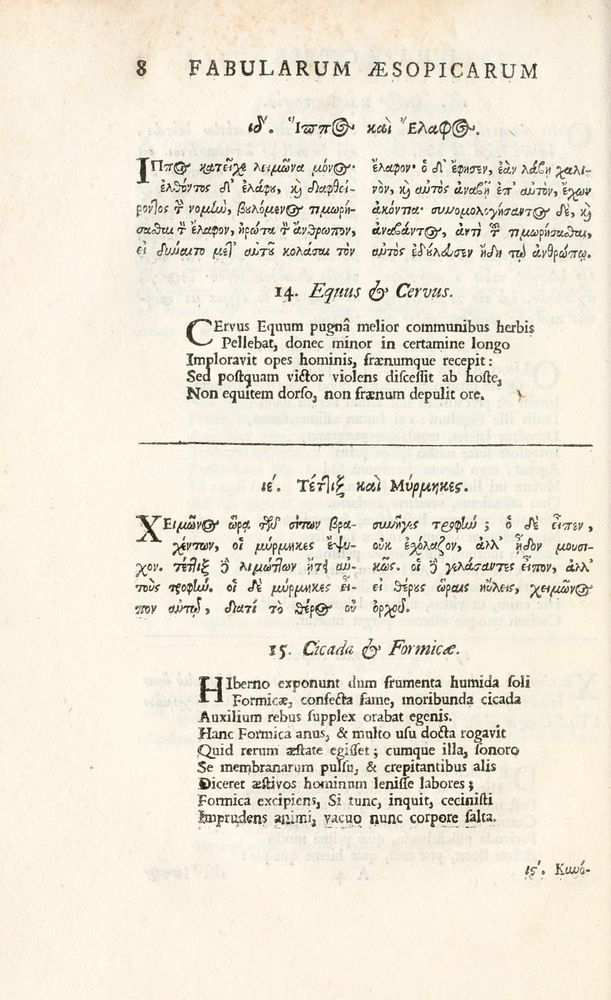 8 FABULARUM ÆSOPICARUM
ιδ'. Ἵππος καὶ Ἔλαφος.
ἹΠπος κατεῖχε λειμῶνα μόνος·
ἐλθόντος δ' ἐλάφου, καὶ διαφθεί-
ροντος τὴν νομὴν, βουλόμενος τιμωρή-
σασθαι τὴν ἔλαφον, ἠρώτα τὸν ἄνθρωπον,
εἰ δύναιτο μετ' αὐτοῦ κολάσαι τὸν
ἔλαφον· ὁ δ' ἔφησεν, ἐὰν λάβῃ χαλι-
νὸν, καὶ αὐτὸς ἀναβῇ ἐπ' αὐτὸν, ἔχων
ἀκόντια· συνομολογήσαντος δὲ, καὶ
ἀναβάντος, ἀντὶ τοῦ τιμωρήσασθαι,
αὐτὸς ἐδούλευσεν ἤδη τῷ ἀνθρώπῳ.
14. Equus & Cervus.
CErvus Equum pugnâ melior communibus herbis
Pellebat, donec minor in certamine longo
Imploravit opes hominis, frænumque recepit:
Sed postquam victor violens discessit ab hoste,
Non equitem dorso, non frænum depulit ore.
ιε'. Τέττιξ καὶ Μύρμηκες.
ΧΕιμῶνος ὥρᾳ τῶν σίτων βρα-
χέντων, οἱ μύρμηκες ἔψυ-
χον. τέττιξ δὲ λιμώττων ᾔτει αὐ-
τοὺς τροφήν. οἱ δὲ μύρμηκες εἶ-
πον αὐτῷ, διατί τὸ θέρος οὐ
συνῆγες τροφήν; ὁ δὲ εἶπεν,
οὐκ ἐσχόλαζον, ἀλλ' ᾖδον μουσι-
κῶς. οἱ δὲ γελάσαντες εἶπον, ἀλλ'
εἰ θέρους ὥραις ηὔλεις, χειμῶνος
ὀρχοῦ.
15. Cicada & Formicæ.
HIberno exponunt dum frumenta humida soli
Formicæ, confecta fame, moribunda cicada
Auxilium rebus supplex orabat egenis.
Hanc Formica anus, & multo usu docta rogavit
Quid rerum æstate egisset; cumque illa, sonoro
Se membranarum pulsu, & crepitantibus alis
Diceret æstivos hominum lenisse labores;
Formica excipiens, Si tunc, inquit, cecinisti
Imprudens animi, vacuo nunc corpore salta.
ις'. Κυνό-